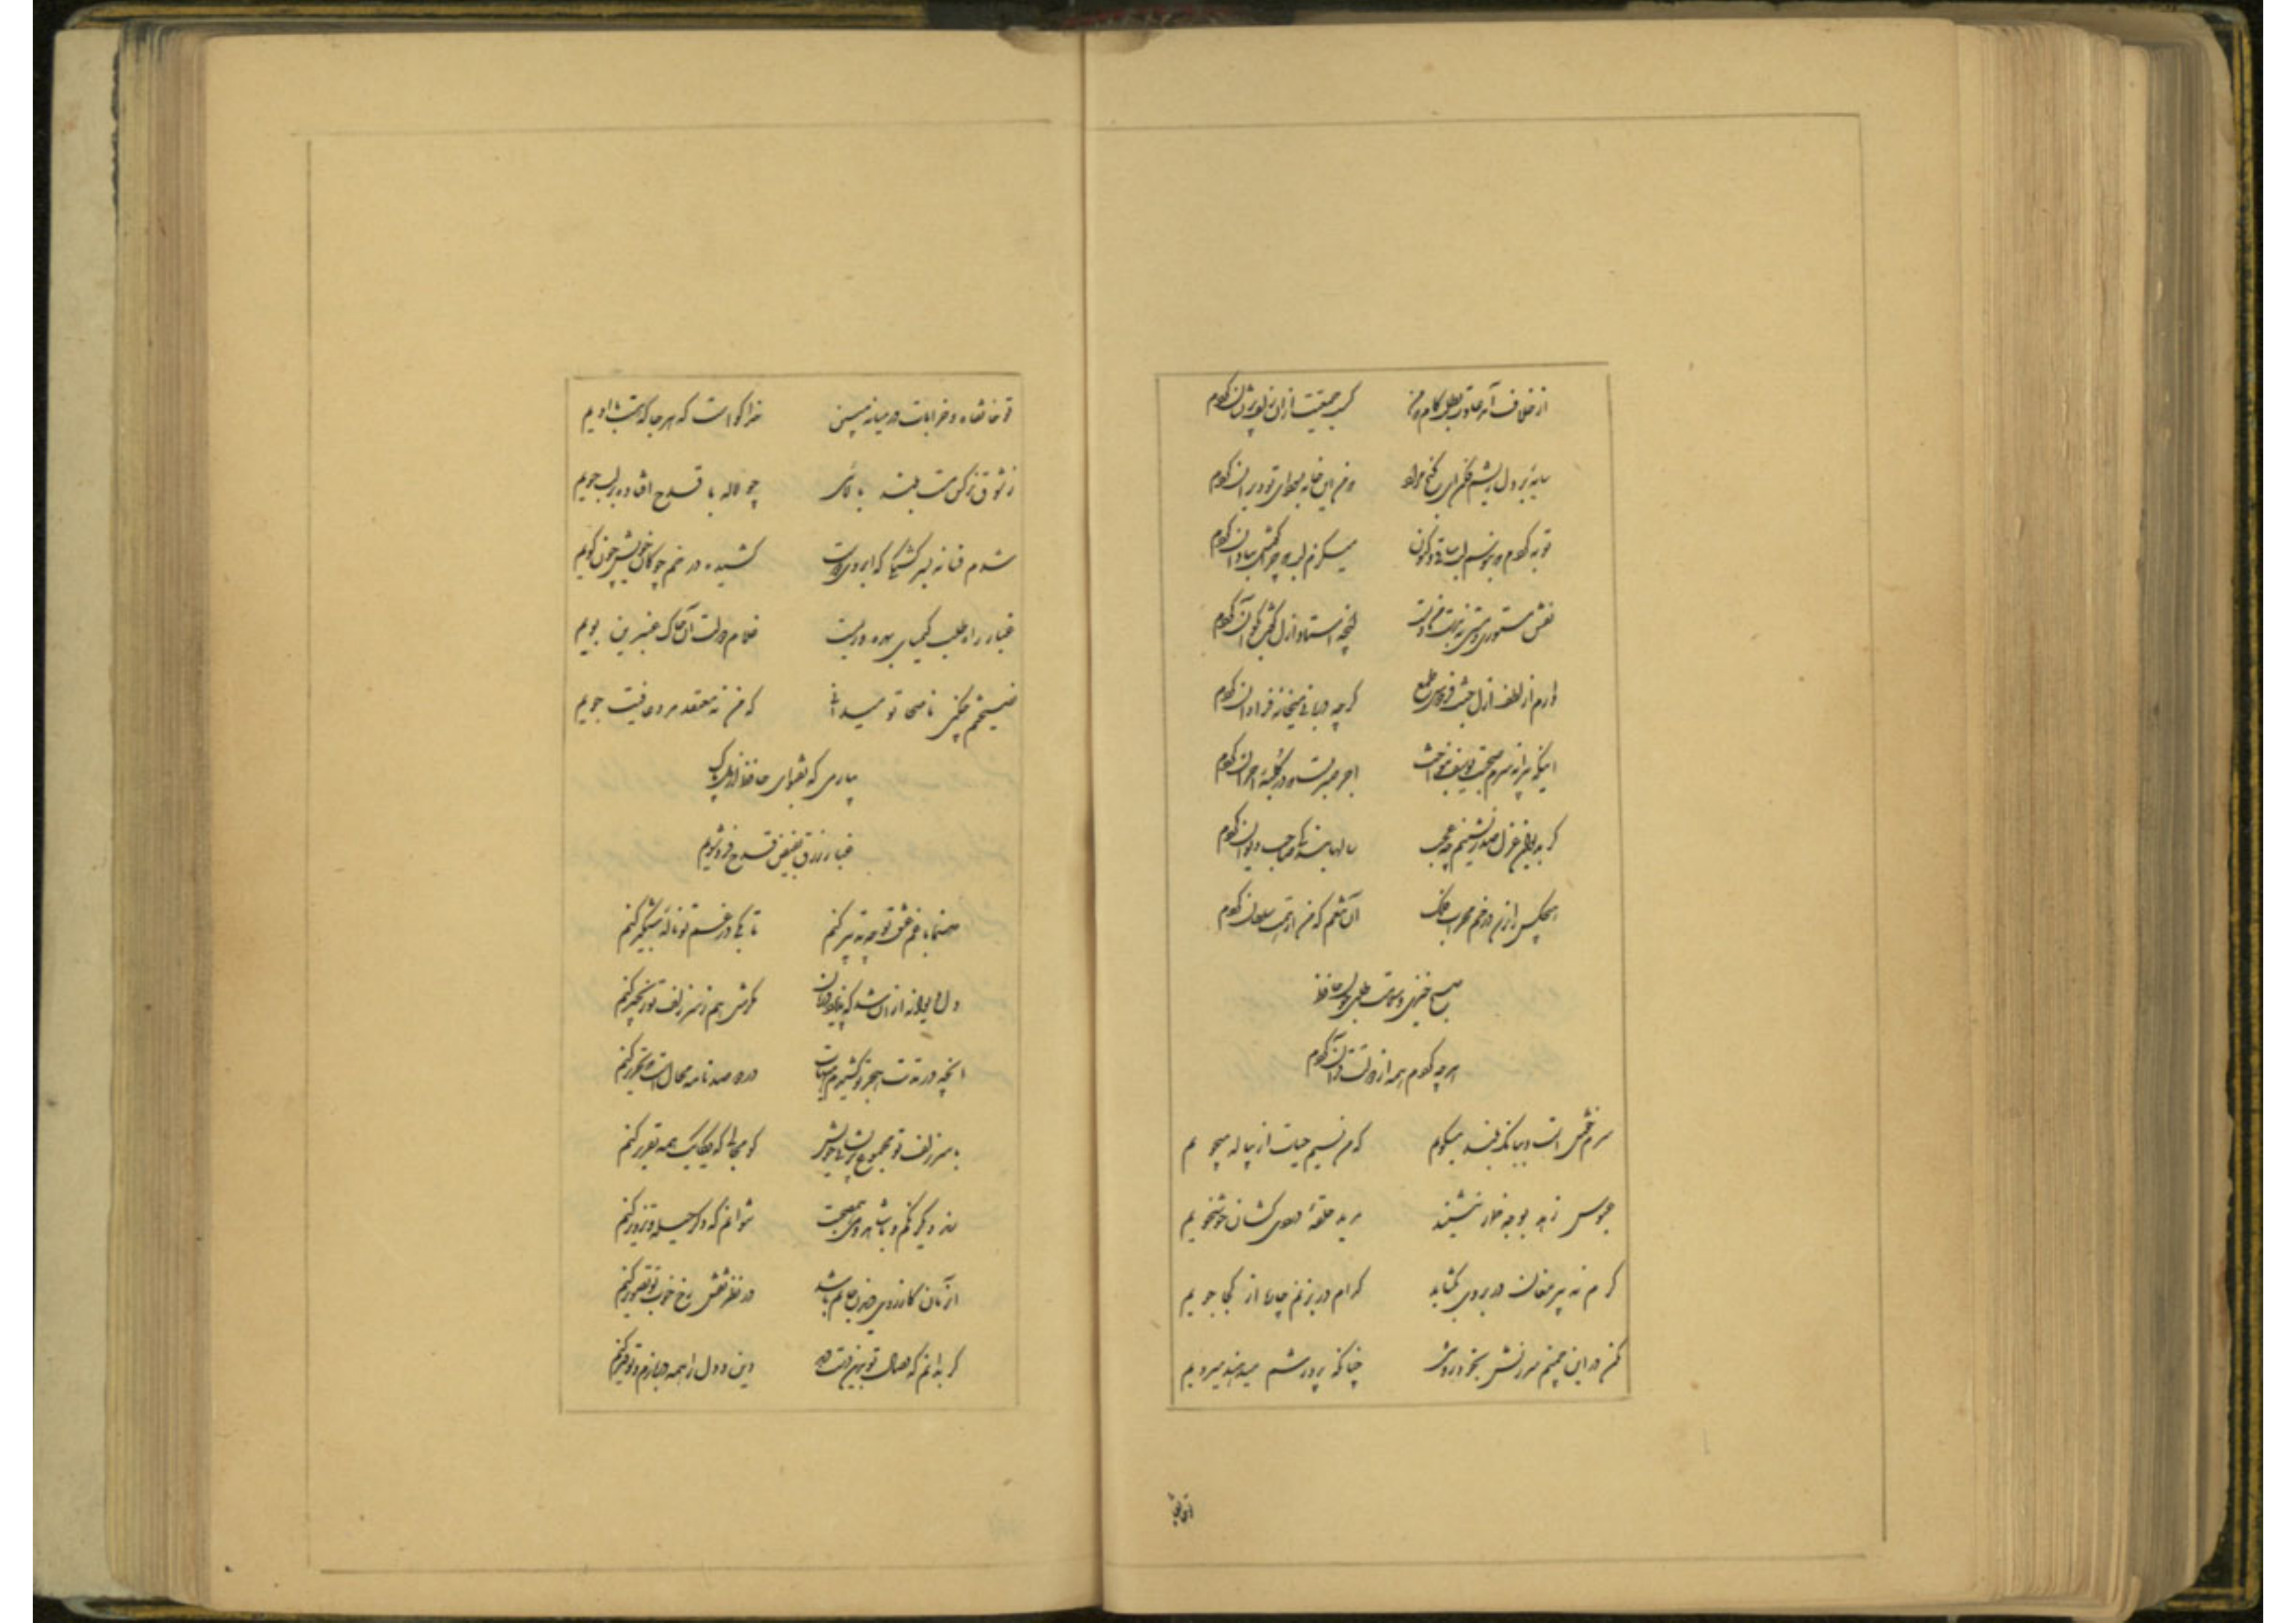 از خلاف آمد عادت بطلب کام که من کسب جمعیت از آن زلف پریشان کردم
سایهٔ بر دل ریشم فکن ای گنج مراد که من این خانه بسودای تو ویران کردم
توبه کردم که نبوسم لب ساقی و کنون میگزم لب که چرا گوش بنادان کردم
نقش مستوری و مستی نه بدست من و تست آنچه استاد ازل گفت بکن آن کردم
دارم از لطف ازل جنت فردوس طمع گرچه دربانی میخانه فراوان کردم
اینکه پیرانه سرم صحبت یوسف بنواخت اجر صبریست که در کلبهٔ احزان کردم
گر بدیوان غزل صدر نشینم چه عجب سالها بندگی صاحب دیوان کردم
هیچکس را نرسد در خم محراب فلک آن تنعم که من از دولت سلطان کردم
صبح خیزی و سلامت طلبی چون حافظ
هر چه کردم همه از دولت قرآن کردم
سرم خوش است و ببانگ بلند میگویم که من نسیم حیات از پیاله میجویم
عبوس زهد بوجه خمار ننشیند مرید حلقهٔ دردی کشان خوشخویم
گرم نه پیر مغان در بروی بگشاید کدام در بزنم چاره از کجا جویم
مکن در این چمنم سرزنش بخودروئی چنانکه پرورشم میدهند میرویم
تو خانقاه و خرابات در میانه مبین خدا گواست که هر جا که هست با اویم
ز شوق نرگس مست بلند بالائی چو لاله با قدح افتاده بر لب جویم
شدم فسانه بسرگشتگی که ابروی دوست کشیده در خم چوگان خویش چون گویم
غبار راه طلب کیمیای بهروزیست غلام دولت آن خاک عنبرین بویم
نصیحتم چکنی ناصحا تو میدانی که من نه معتقد مرد عافیت جویم
بیار می که بفتوای حافظ از دل پاک
غبار زرق بفیض قدح فروشویم
صنما با غم عشق تو چه تدبیر کنم تا بکی در غم تو نالهٔ شبگیر کنم
دل دیوانه از آن شد که پذیرد درمان مگرش هم ز سر زلف تو زنجیر کنم
آنچه در مدت هجر تو کشیدم هیهات در دو صد نامه محال است که تحریر کنم
با سر زلف تو مجموع پریشانی خویش کو مجالی که یکایک همه تقریر کنم
آن زمان کارزوی دیدن جانم باشد در نظر نقش رخ خوب تو تصویر کنم
گر بدانم که وصال تو بدین دست دهد دین و دل را همه در بازم و توفیر کنم